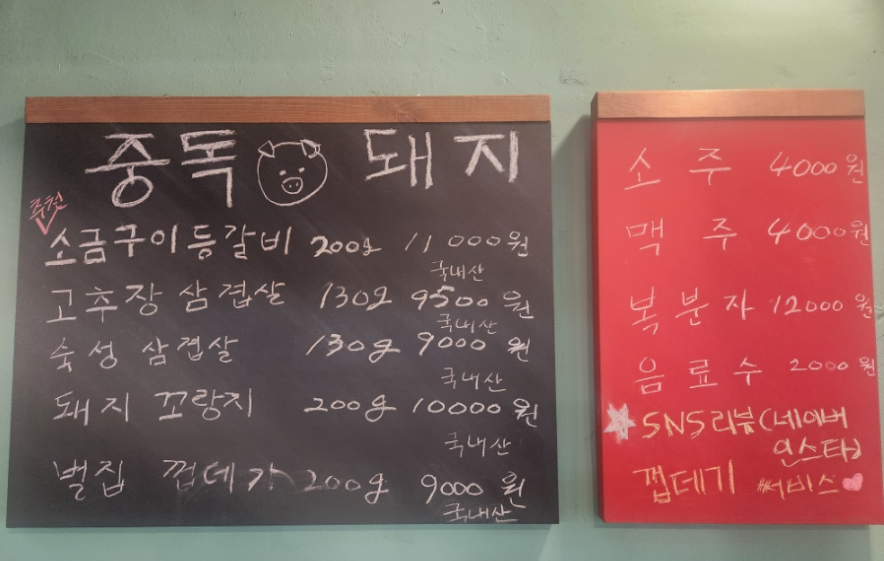 중독 돼지
추천
소금구이등갈비 200g 11000원
국내산
고추장 삼겹살 130g 9500원
국내산
숙성 삼겹살 130g 9000원
국내산
돼지 꼬랑지 200g 10000원
국내산
벌집 껍데기 200g 9000원
국내산
소주 4000원
맥주 4000원
복분자 12000원
음료수 2000원
SNS리뷰(네이버
인스타)
껍데기 #서비스